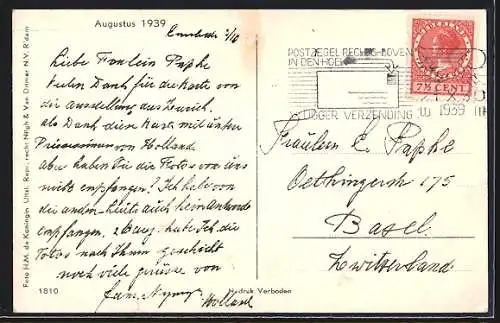 Augustus 1939
Enschede 2/10
Liebe Fraulein Paphe
Vielen Dank für die Karte von
die Ausstellung aus Zurich.
als Dank diese Karte mit unsern
von Holland.
aber haben Sie die Fotos von uns
nicht empfangen? Ich habe von
die andern Leute auch kein Antworde
empfangen. habe Ich die
Fotos nach Ihnen geschickt
noch viele grüsse von
fam.
Holland
1810
Foto H.M. de Koningin. Uitsl. Repr. recht Nijgh & Van Ditmar N.V. R'dam
Nadruk Verboden
POSTZEGEL RECHTS BOVEN
IN DEN HOEK
VLUGGER VERZENDING
1939
NEDERLAND
7½ CENT
Fräulein E. Paphe
Oetlingerstr 175
Basel.
Zwitserland.